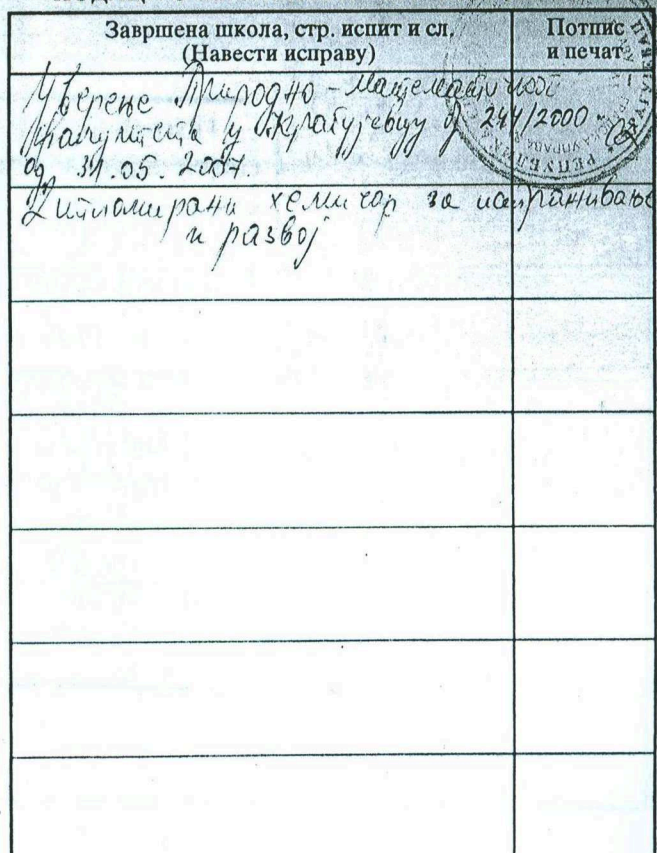 Завршена школа, стр. испит и сл.
(Навести исправу)
Потпис
и печат
Уверење Природно-математичког
факултета у Крагујевцу 244/2000
од 31.05.
Дипломирани хемичар за истраживање
и развој